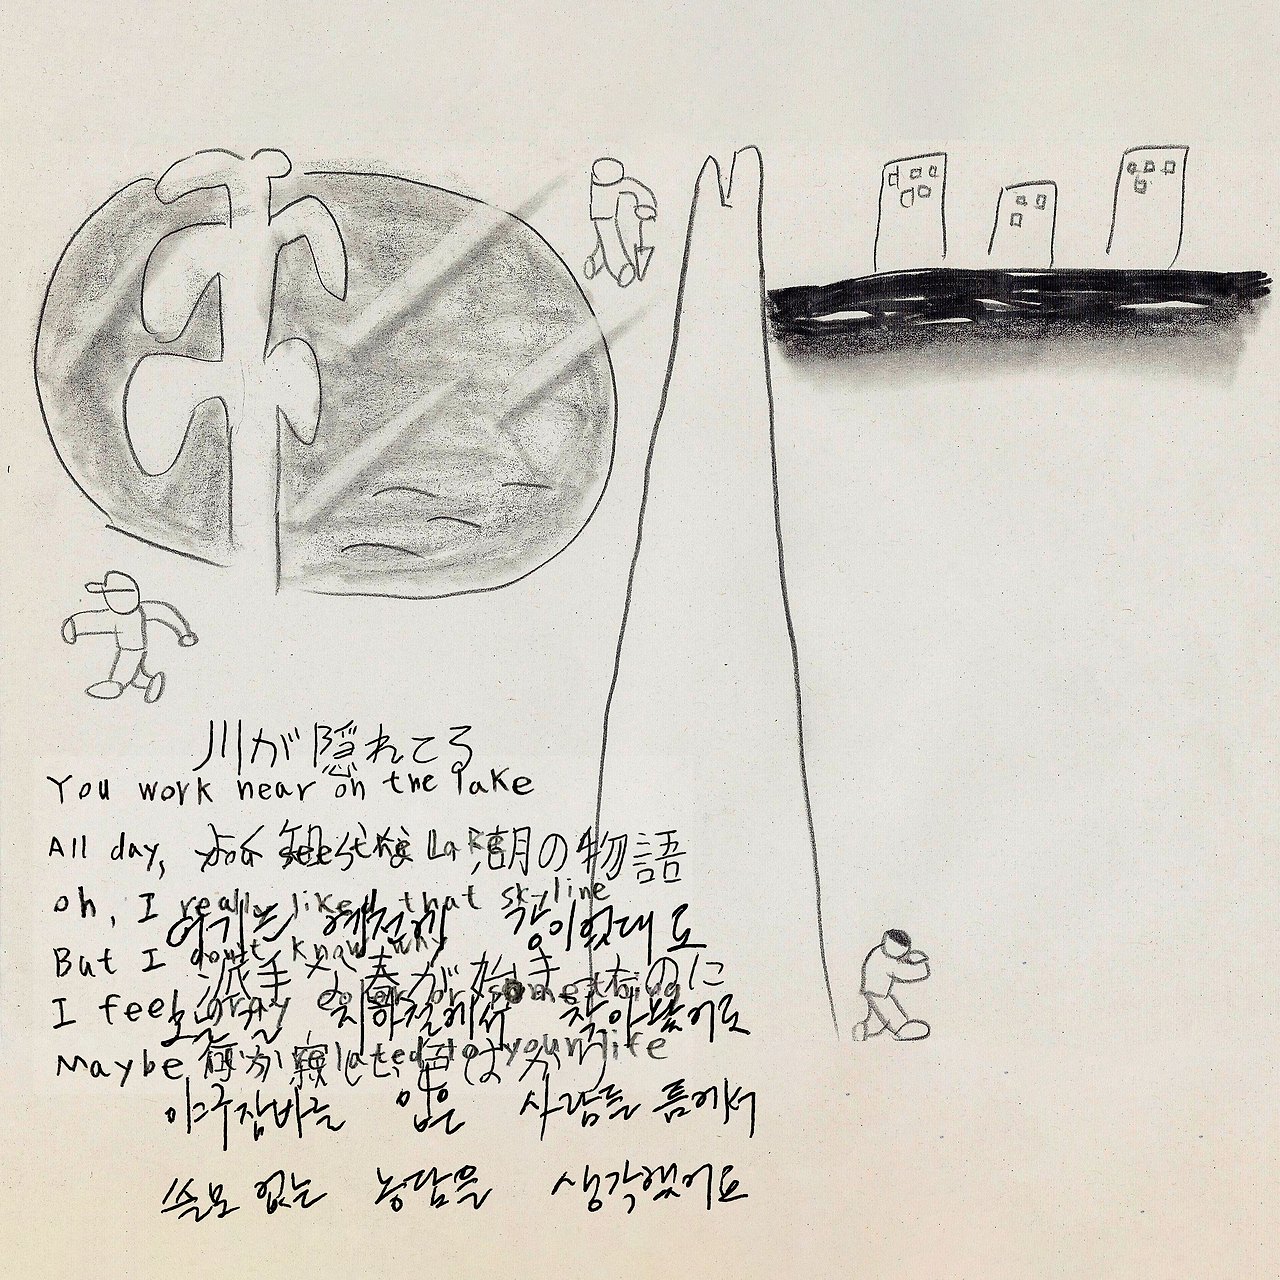 川が隠れてる
You work near on the lake
All day, you see the Lake 湖の物語
oh, I really like that skyline
여기는 예전에 강이었대요
But I dont know why
派手な春が始まったのに
I feel gray color or something
오늘날 지하철에서 찾아봤어요
Maybe related to your life
야구잠바를 입은 사람들 틈에서
쓸모 없는 농담을 생각했어요